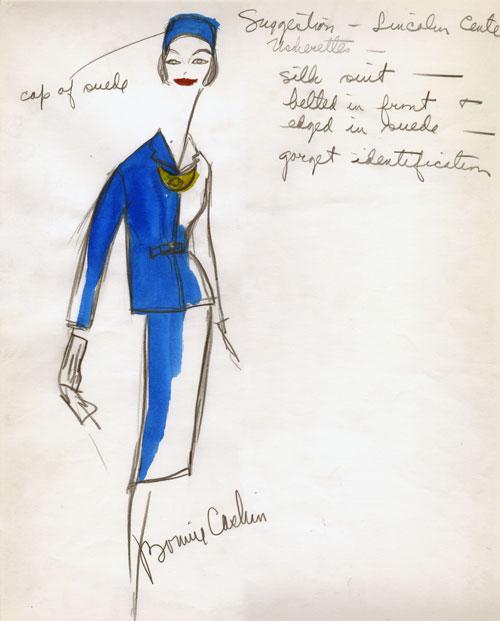 Suggestion - Lincoln Cente
Usherettes -
silk suit —
belted in front +
edged in suede —
gorget identification
cap of suede
Bonnie Cashin